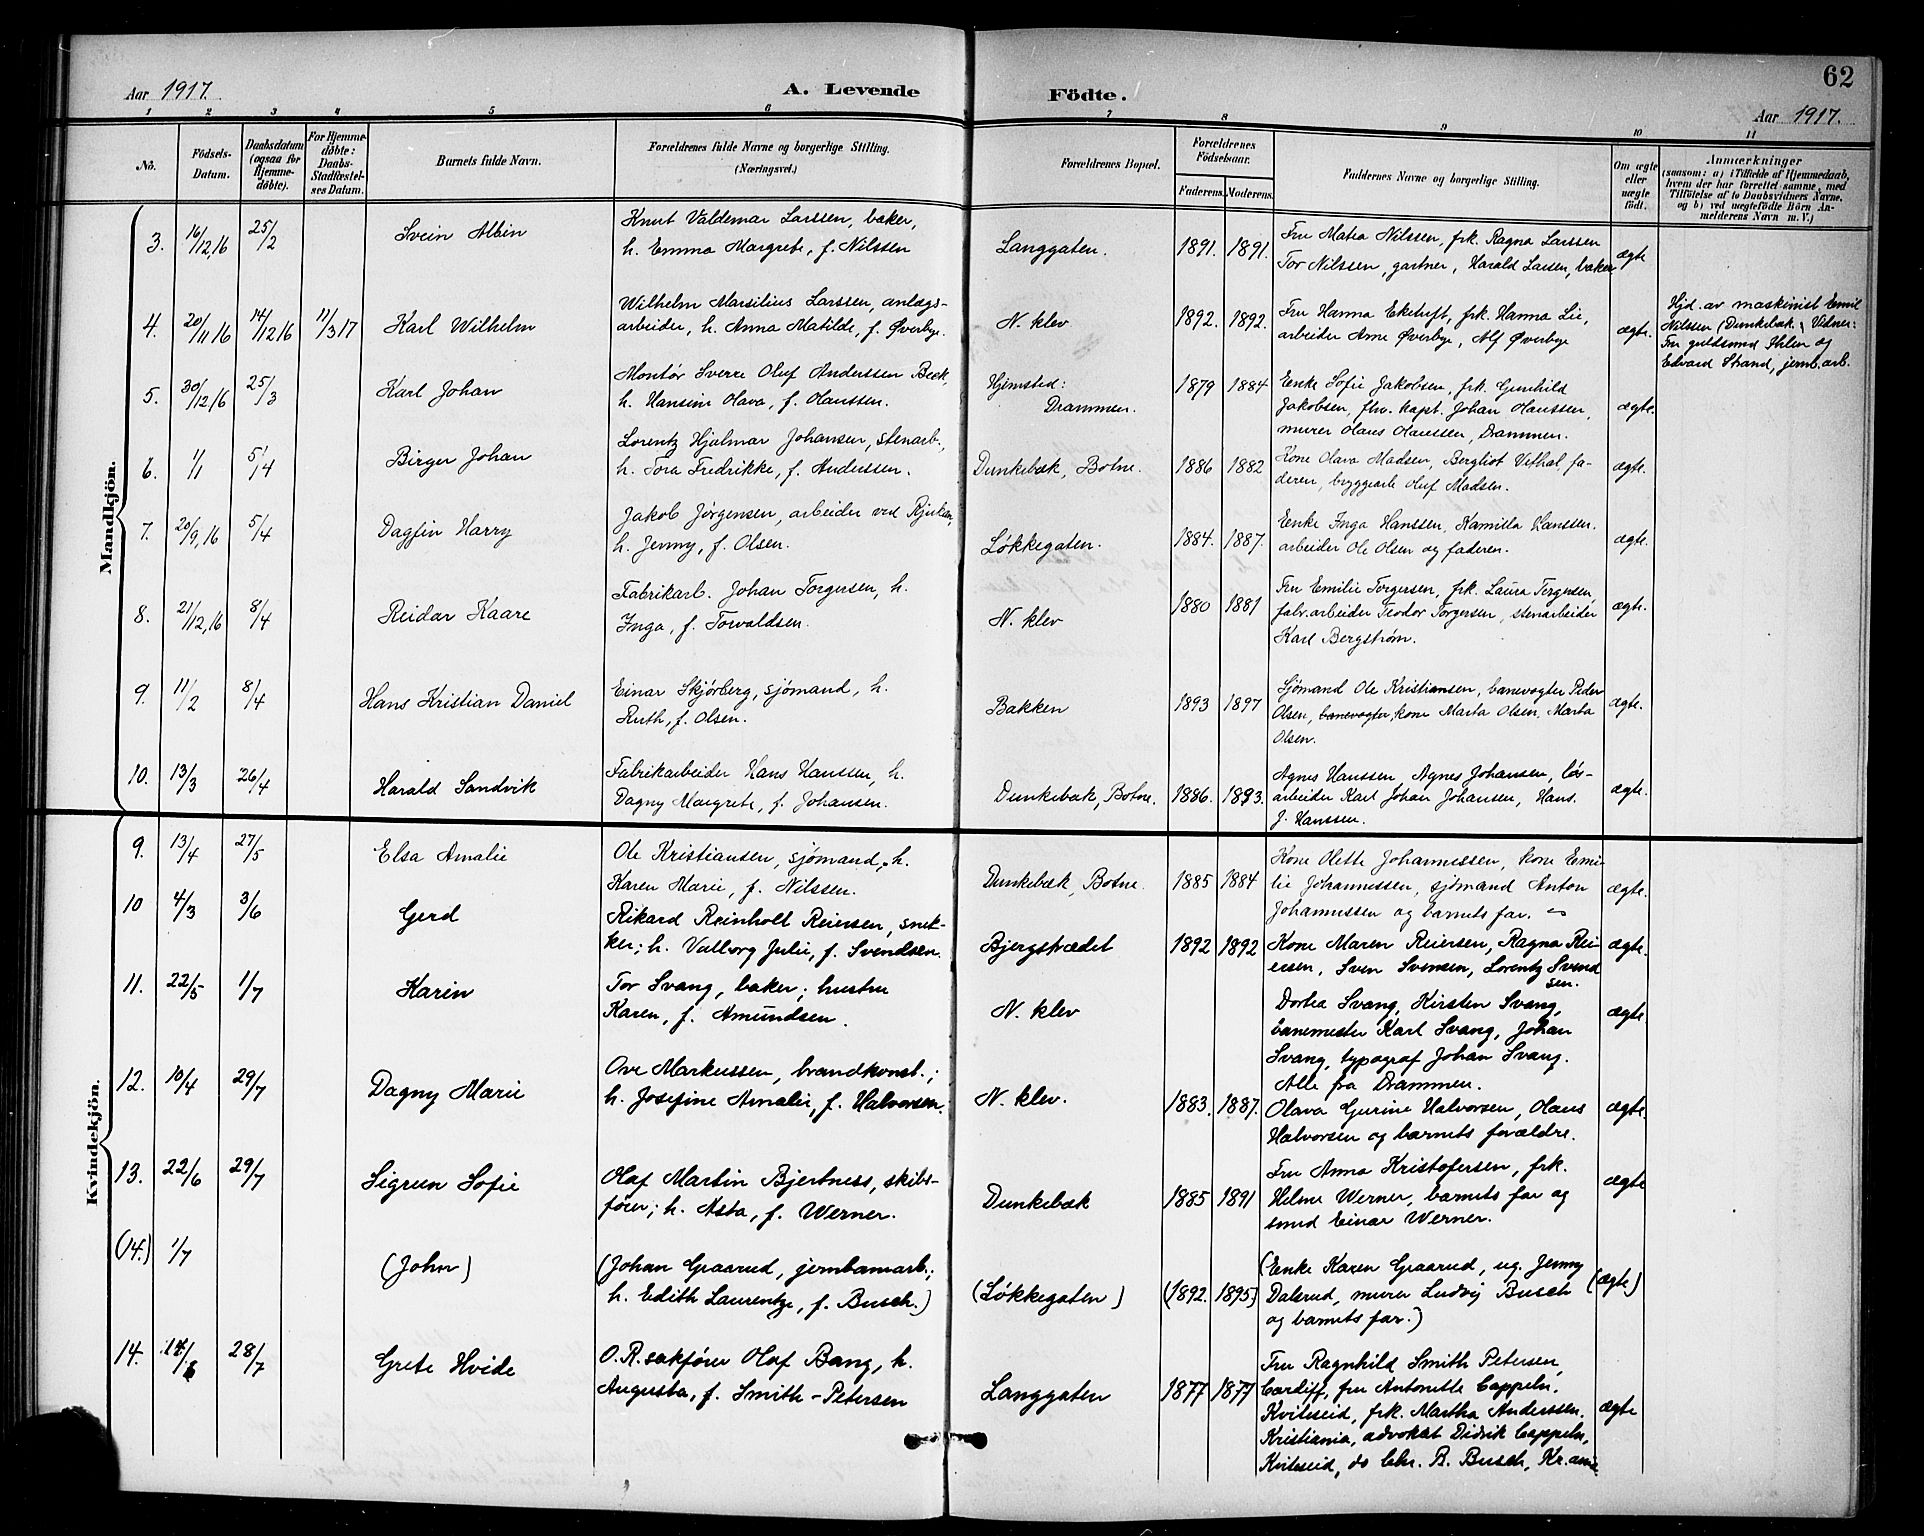 62
Aar 1917. A. Levende Födte. Aar 1917.
1 2 3 4 5 6 7 8 9 10 11
No. Födsels-Datum. Daabsdatum (ogsaa for Hjemme-døbte). For Hjemme-døbte: Daabs-Stadfæstel-ses Datum. Barnets fulde Navn. Forældrenes fulde Navne og borgerlige Stilling. (Næringsvei.) Forældrenes Bopæl. Forældrenes Födselsaar. Faderens. Moderens. Faddernes Navne og borgerlige Stilling. Om ægte eller uægte født. Anmærkninger (saasom: a) i Tilfælde af Hjemmedaab, hvem der har forrettet samme, med Tilföielse af to Daabsvidners Navne. og b) ved uægtefödte Börn An-melderens Navn m. V.)
Mandkjön.
3. 16/12,16 25/2 Svein Albin Knut Valdemar Larssen, baker, Langgaten. 1891. 1891. Fru Matea Nilssen, frk. Ragna Larssen ægte
h. Emma Margrete, f. Nilssen Tor Nilssen, gartner, Harald Larsen, baker
4. 20/11 16 14/12 16 11/3 17 Karl Wilhelm Wilhelm Marsilius Larssen, anlægs- N. klev 1892. 1892. Fru Hanna Eketuft, frk. Hanna Lie, ægte. Hjd. av maskinist Emil
arbeider, h. Anna Matilde, f. Øverbye. arbeider Arne Øverbye, Alf Øverbye Nilssen (Dunkebæk. Vidner:
Fru guldsmed Ihlen og
Edvard Strand, jernb.arb.
5. 30/12 16 25/3 Karl Johan Montør Sverre Oluf Anderssen Beck, Hjemsted: 1879 1884 Enke Sofie Jakobsen, frk. Gunhild ægte.
h. Hansine Olava, f. Olaussen. Drammen. Jakobsen, fhv. kapt. Johan Olaussen,
murer Olaus Olaussen, Drammen.
6. 1/1 5/4 Birger Johan Lorentz Hjalmar Johansen, stenarb., Dunkebæk, Botne. 1886 1882 Kone Olava Madsen, Bergliot Vethal, fa- ægte.
h. Tora Fredrikke, f. Anderssen. deren, bryggearb. Oluf Madsen.
7. 20/9,16 5/4 Dagfin Harry Jakob Jørgensen, arbeider ved Rjukan, Løkkegaten. 1884. 1887. Enke Inga Hanssen, Kamilla Hanssen. ægte.
h. Jenny, f. Olsen. arbeider Ole Olsen og faderen.
8. 21/12,16 8/4 Reidar Kaare Fabrikarb. Johan Torgersen, h. N. klev 1880 1881 Fru Emilie Torgersen, frk. Laura Torgersen, ægte.
Inga, f. Torvaldsen. fabr.arbeider Teodor Torgersen, stenarbeider
Karl Bergstrøm.
9. 11/2 8/4 Hans Kristian Daniel Einar Skjørberg, sjømand, h. Bakken 1893 1897 Sjømand Ole Kristiansen, banevogter Peder ægte.
Ruth, f. Olsen. Olsen, banevogter, kone Marta Olsen, Marta
Olsen.
10. 13/3 26/4 Harald Sandvik Fabrikarbeider Hans Hanssen, h. Dunkebæk, Botne. 1886. 1893. Agnes Hanssen, Agnes Johansen, løs- ægte.
Dagny Margrete, f. Johansen. arbeider Karl Johan Johansen, Hans
J. Hanssen.
Kvindekjön.
9. 13/4 27/5 Elsa Amalie Ole Kristiansen, sjømand, h. Dunkebæk, Botne. 1885 1884 Kone Olette Johannessen, kone Emi- ægte.
Karen Marie, f. Nilssen. lie Johannessen, sjømand Anton
Johannessen og barnets far.
10 4/3 3/6 Gerd Rikard Reinholt Reiersen, snek- Bjergstrædet 1892 1892 Kone Maren Reiersen, Ragna Rei- ægte.
ker; h. Valborg Julie, f. Svendsen. ersen, Sven Svensen, Lorentz Svend
sen.
11. 22/5 1/7 Karin Tor Svang, baker; hustru N. klev Dortea Svang, Kirsten Svang, ægte
Karen, f. Amundsen. banemester Karl Svang, Johan
Svang, typograf Johan Svang.
Alle fra Drammen.
12. 10/4 29/7 Dagny Marie Ove Markussen, brandkonst.; N. klev. 1883. 1887. Olava Gurine Halvorsen, Olaus ægte
h. Josefine Amalie, f. Halvorsen. Halvorsen og barnets forældre.
13. 22/6 29/7 Sigrun Sofie Olaf Martin Bjertness, skibs- Dunkebæk 1885 1891 Fru Anna Kristofersen, frk. ægte
fører; h. Asta, f. Werner. Helene Werner, barnets far og
smed Einar Werner.
(14.) 1/7 (John) (Johan Graarud, jernbanearb.; (Løkkegaten) (1892. 1895) (Enke Karen Graarud, ug. Jenny (ægte)
h. Edith Laurentze, f. Busch.) Dalsrud, murer Ludvig Busch
og barnets far.)
14. 28/7 Grete Hvide O.R.sakfører Olaf Bang, h. Langgaten 1877 1877 Fru Ragnhild Smith Petersen, ægte
Augusta, f. Smith-Petersen Cardiff, fru Antonette Cappeln.
Kviteseid, frk. Martha Anderssen.
Kristiania, advokat Didrik Cappeln,
Kviteseid, do Chr. B. Busch, Kr.ania